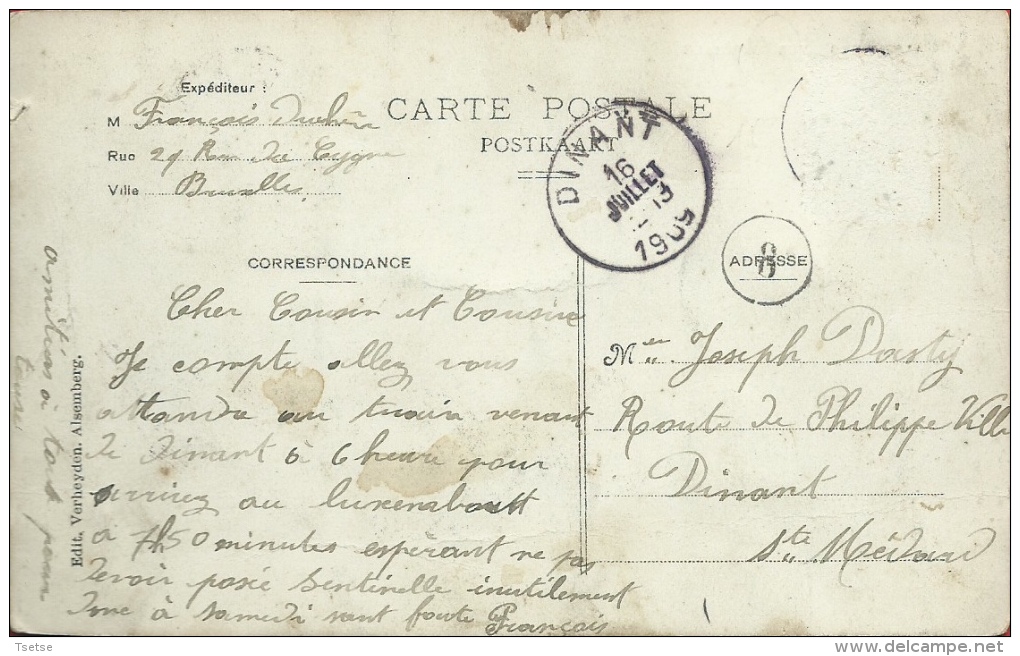 Expéditeur :
CARTE POSTALE
M François
POSTKAART
Rue 29 Rue du Cygne
Ville Bruxelles
DINANT
16
JUILLET
1909
CORRESPONDANCE
ADRESSE
6
Cher Cousin et Cousine
Je compte allez vous
attandre au train venant
de Dinant à 6 heure pour
arrivez au luxembourtt
a 7h50 minutes espérant ne pas
devoir posée Sentinelle inutilement
Dme à samedi sant faute François
amitiés à tous pour
tous
Edit. Verheyden. Alsemberg.
Mr Joseph Dasty
Route de Philippe Ville
Dinant
Ste Médard
Tsetse
www.delcampe.net